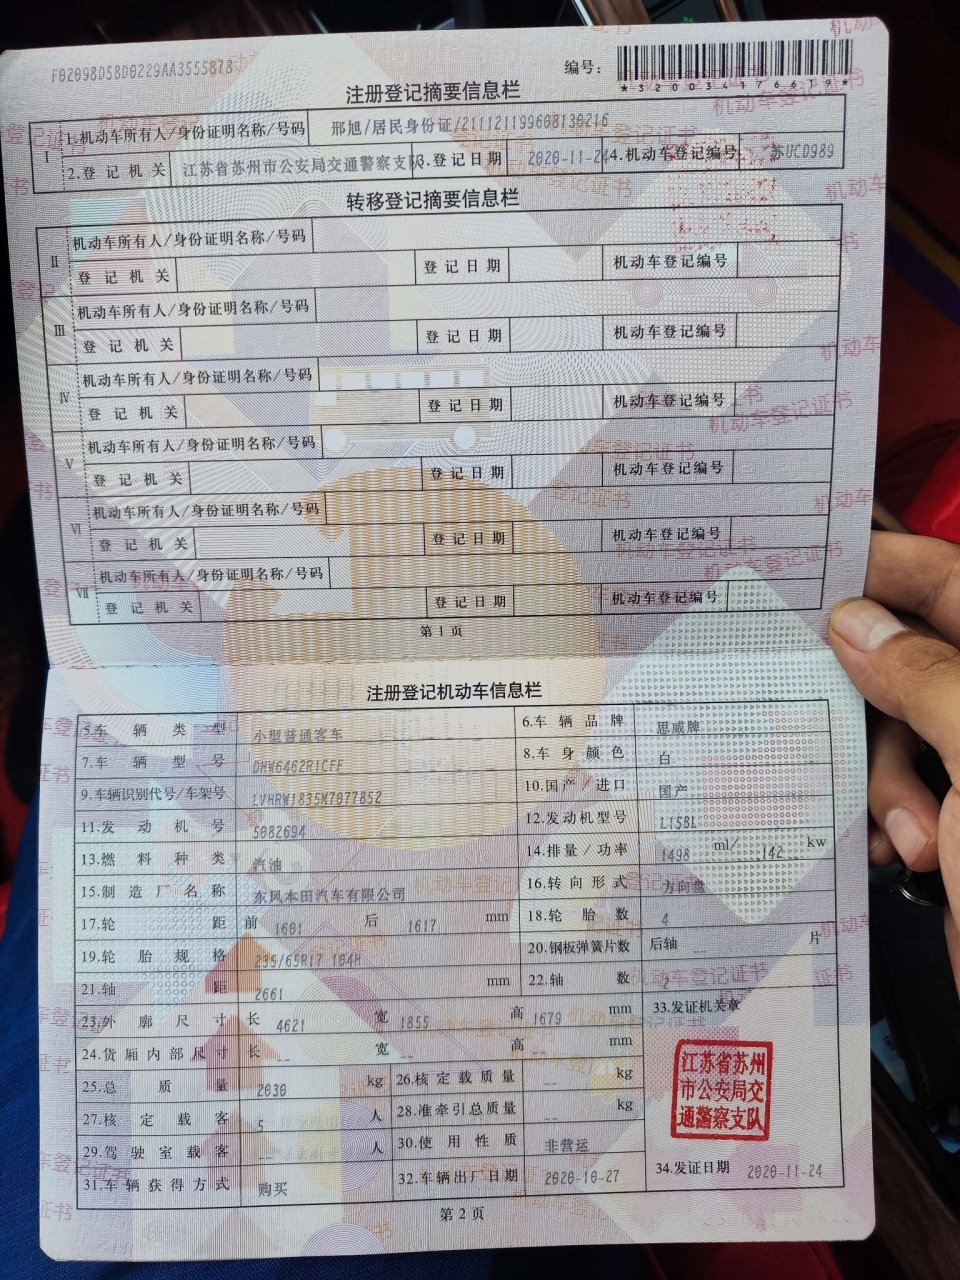 F02098D58D0229AA3555878
编号：
*320034176679*
注册登记摘要信息栏
Ⅰ 1.机动车所有人/身份证明名称/号码 邢旭/居民身份证/211121199608130216
2.登记机关 江苏省苏州市公安局交通警察支队 3.登记日期 2020-11-24 4.机动车登记编号 苏UCD989
转移登记摘要信息栏
Ⅱ 机动车所有人/身份证明名称/号码
登记机关 登记日期 机动车登记编号
Ⅲ 机动车所有人/身份证明名称/号码
登记机关 登记日期 机动车登记编号
Ⅳ 机动车所有人/身份证明名称/号码
登记机关 登记日期 机动车登记编号
Ⅴ 机动车所有人/身份证明名称/号码
登记机关 登记日期 机动车登记编号
Ⅵ 机动车所有人/身份证明名称/号码
登记机关 登记日期 机动车登记编号
Ⅶ 机动车所有人/身份证明名称/号码
登记机关 登记日期 机动车登记编号
第1页
注册登记机动车信息栏
5.车辆类型 小型普通客车 6.车辆品牌 思威牌
7.车辆型号 DHW6462R1CFF 8.车身颜色 白
9.车辆识别代号/车架号 LVHRW1835M7077852 10.国产/进口 国产
11.发动机号 5082694 12.发动机型号 L15BL
13.燃料种类 汽油 14.排量/功率 1498 ml/ 142 kw
15.制造厂名称 东风本田汽车有限公司 16.转向形式 方向盘
17.轮距 前 1601 后 1617 mm 18.轮胎数 4
19.轮胎规格 235/65R17 104H 20.钢板弹簧片数 后轴 -- 片
21.轴距 2661 mm 22.轴数 2
23.外廓尺寸 长 4621 宽 1855 高 1679 mm 33.发证机关章
24.货厢内部尺寸 长 -- 宽 -- 高 -- mm
25.总质量 2030 kg 26.核定载质量 -- kg
27.核定载客 5 人 28.准牵引总质量 -- kg
江苏省苏州
市公安局交
通警察支队
29.驾驶室载客 -- 人 30.使用性质 非营运
31.车辆获得方式 购买 32.车辆出厂日期 2020-10-27 34.发证日期 2020-11-24
第2页